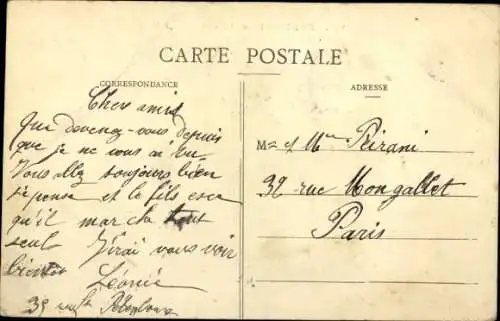 CARTE POSTALE
CORRESPONDANCE
ADRESSE
Cher amis
Que devenez-vous depuis
que je ne vous ai vu.
Vous allez toujours bien
je pense et le fils esce
qu'il marche tout
seul J'irai vous voir
bientôt
Léonie
39 rue
M et Mme Peirani
39 rue Mongallet
Paris